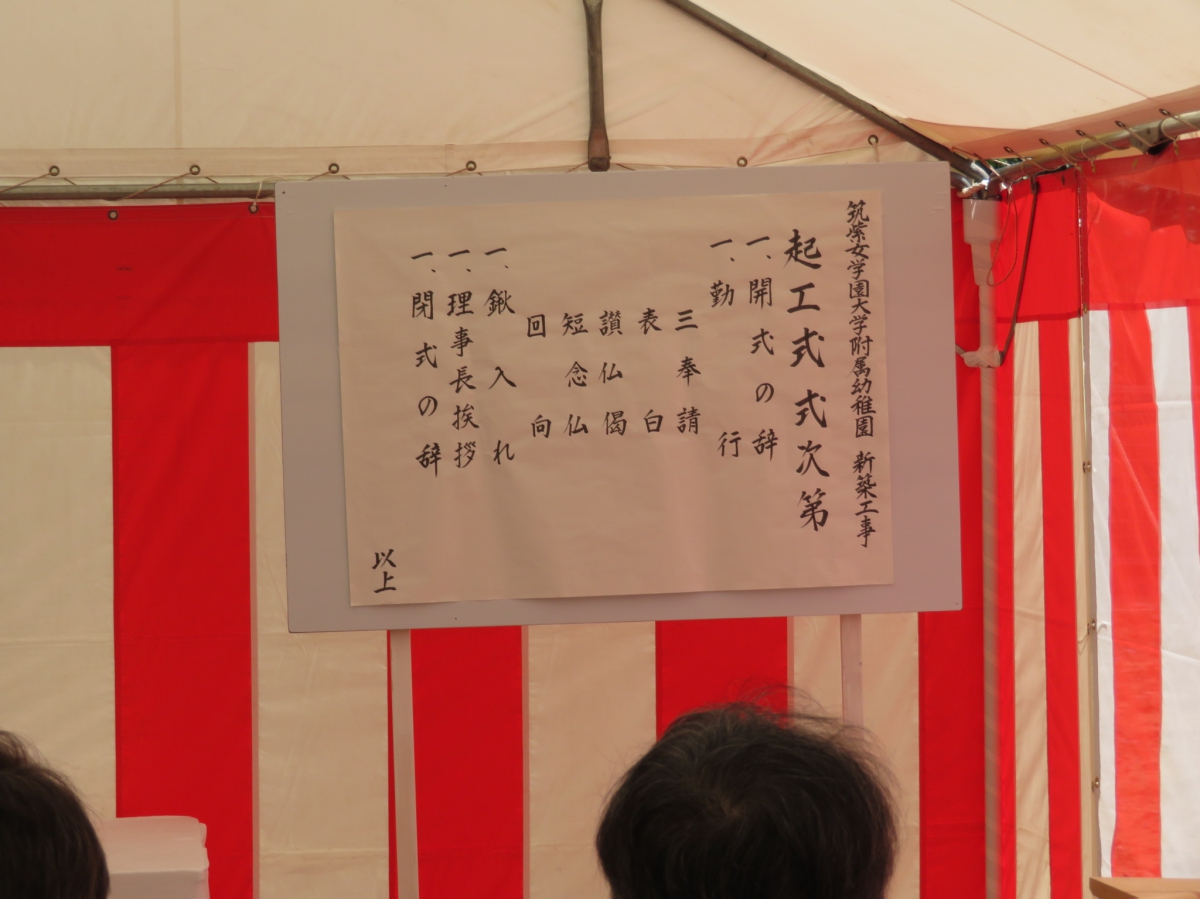 筑紫女学園大学附属幼稚園 新築工事
起工式式次第
一、開式の辞
一、勤行
三奉請
表白
讃仏偈
短念仏
回向
一、鍬入れ
一、理事長挨拶
一、閉式の辞
以上